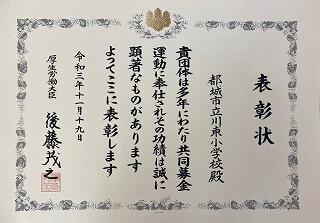 表彰状
都城市立川東小学校殿
貴団体は多年にわたり共同募金
運動に奉仕されその功績は誠に
顕著なものがあります
よってここに表彰します
令和三年十一月十九日
厚生労働大臣 後藤茂之